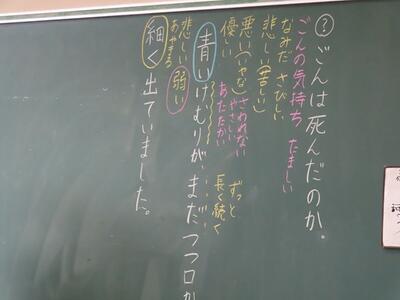 ?ごんは死んだのか。
ごんの気持ち たましい
なみだ さびしい
悲しい(苦しい)
悪い(いやな) さわれない
優しい やさしい
あたたかい
ずっと
長く続く
青いけむりが、まだつつ口か
悲しい 弱い
あやまる
細く出ていました。